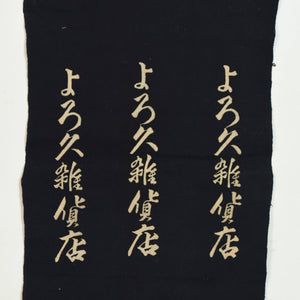 よろ久雑貨店
よろ久雑貨店
よろ久雑貨店